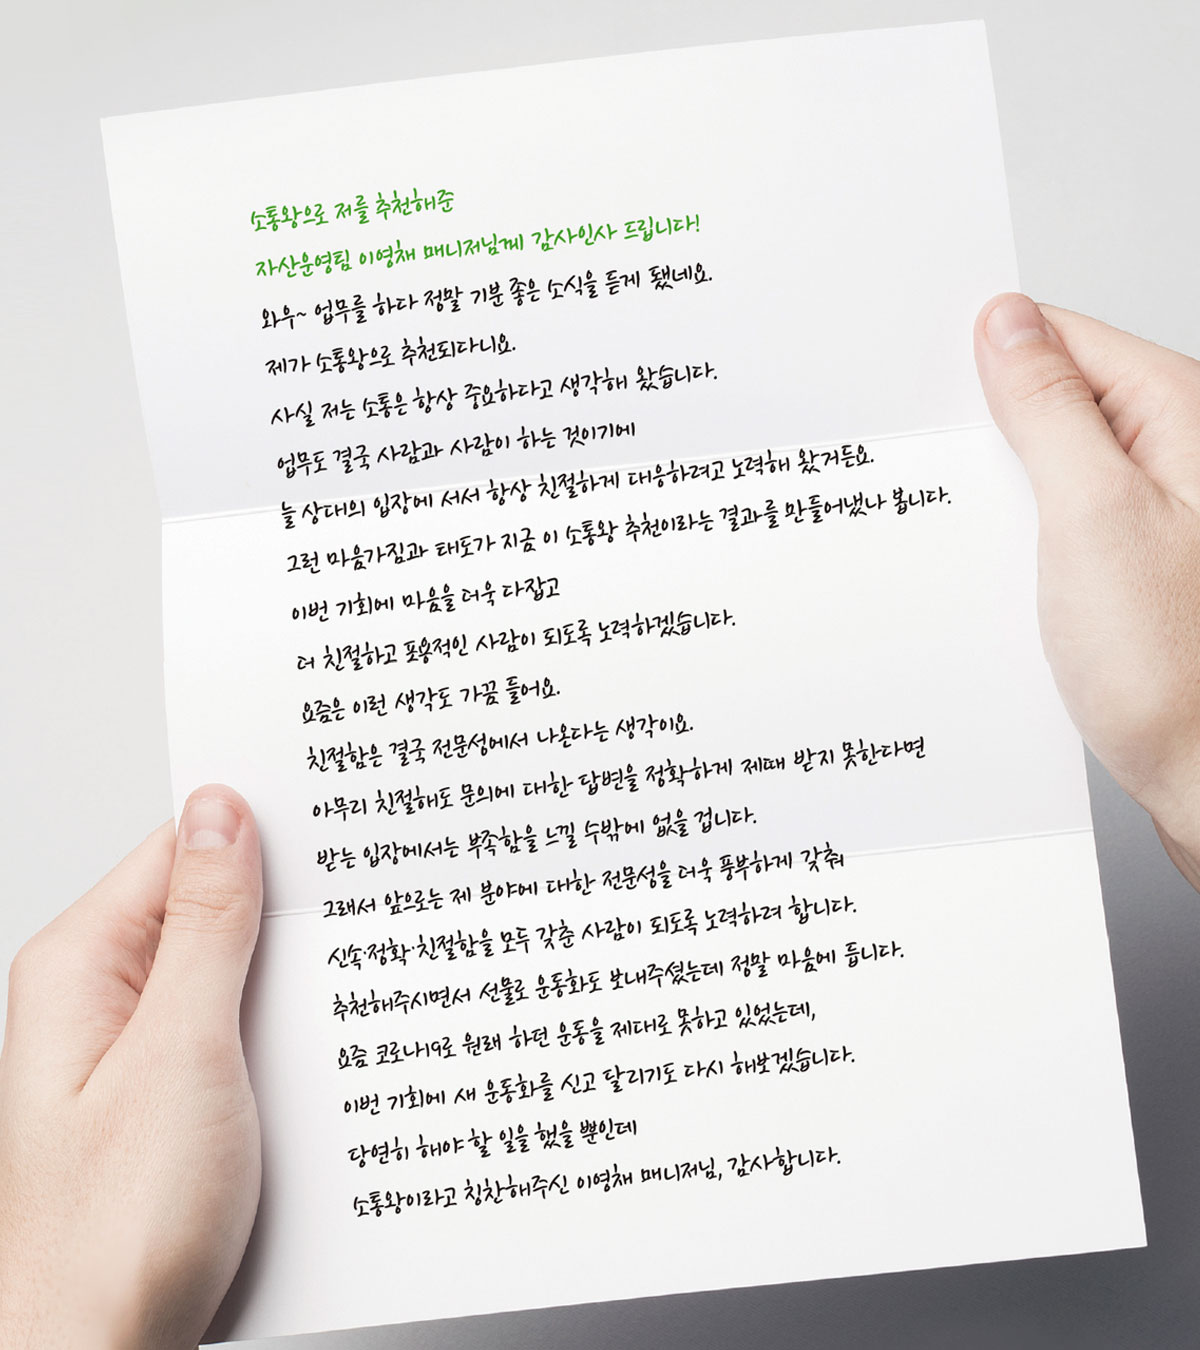 소통왕으로 저를 추천해준
자산운영팀 이영채 매니저님께 감사인사 드립니다!
와우~ 업무를 하다 정말 기분 좋은 소식을 듣게 됐네요.
제가 소통왕으로 추천되다니요.
사실 저는 소통은 항상 중요하다고 생각해 왔습니다.
업무도 결국 사람과 사람이 하는 것이기에
늘 상대의 입장에 서서 항상 친절하게 대응하려고 노력해 왔거든요.
그런 마음가짐과 태도가 지금 이 소통왕 추천이라는 결과를 만들어냈나 봅니다.
이번 기회에 마음을 더욱 다잡고
더 친절하고 포용적인 사람이 되도록 노력하겠습니다.
요즘은 이런 생각도 가끔 들어요.
친절함은 결국 전문성에서 나온다는 생각이요.
아무리 친절해도 문의에 대한 답변을 정확하게 제때 받지 못한다면
받는 입장에서는 부족함을 느낄 수밖에 없을 겁니다.
그래서 앞으로는 제 분야에 대한 전문성을 더욱 풍부하게 갖춰
신속·정확·친절함을 모두 갖춘 사람이 되도록 노력하려 합니다.
추천해주시면서 선물로 운동화도 보내주셨는데 정말 마음에 듭니다.
요즘 코로나19로 원래 하던 운동을 제대로 못하고 있었는데,
이번 기회에 새 운동화를 신고 달리기도 다시 해보겠습니다.
당연히 해야 할 일을 했을 뿐인데
소통왕이라고 칭찬해주신 이영채 매니저님, 감사합니다.